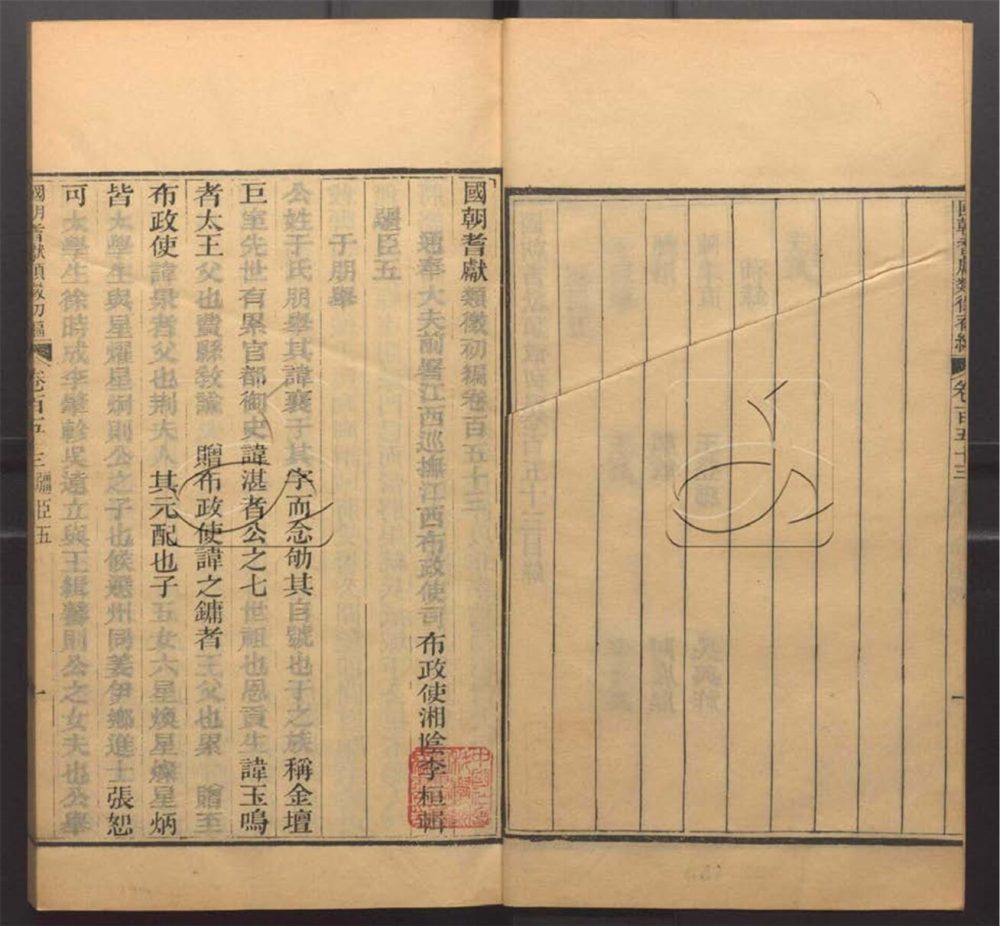 國朝耆獻類徵初編卷百五十三
通奉大夫前署江西巡撫江西布政使司布政使湘陰李桓輯
疆臣五
于朋舉
公姓于氏朋舉其諱襄于其字而念劬其自號也于之族稱金壇
巨室先世有累官都御史諱湛者公之七世祖也恩貢生諱玉鳴
者太王父也費縣敎諭贈布政使諱之鏞者王父也累贈至
布政使諱景者父也荆夫人其元配也子五女六星煥星燦星炳
皆太學生與星燿星炯則公之子也候選州同姜伊鄉進士張恕
可太學生徐時成李肇軫吳遁立與王緝馨則公之女夫也公舉
國朝耆獻類徵初編 卷百五十三 疆臣五 一
國朝耆獻類徵初編 卷一百五十三 一